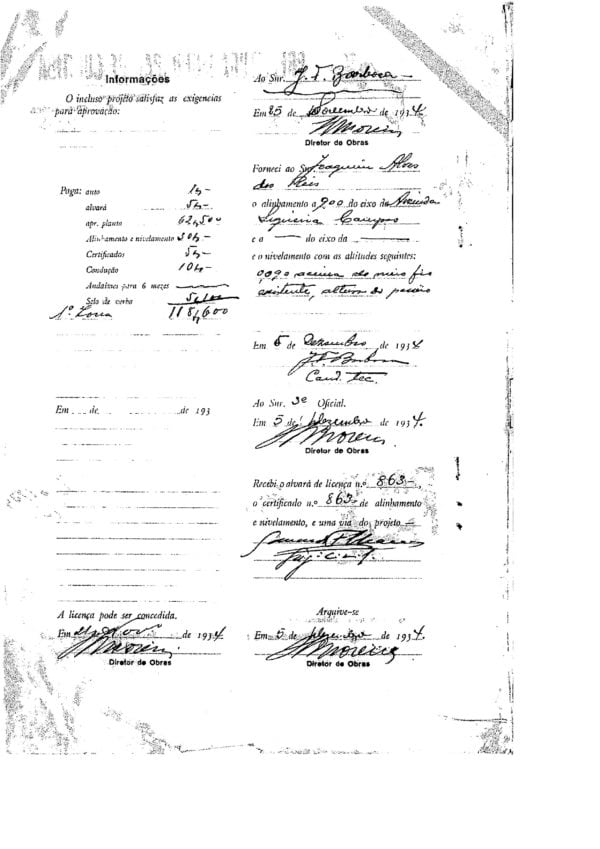 Informações
O incluso projéto satisfaz as exigencias
para aprovação:
Paga: auto 1$-
alvará 5$-
apr. planta 62,500
Alinhamento e nivelamento 30$-
Certificados 5$-
Condução 10$-
Andaimes para 6 mezes
Selo de verba
118,600
Em de de 193
A licença pode ser concedida.
Em de 1934
Diretor de Obras
Ao Snr. J. F. Barbosa
Em 25 de Novembro de 1934
Moreira
Diretor de Obras
Forneci ao Snr. Joaquim Alves
dos Reis
o alinhamento a 9,00 do eixo da Avenida
Siqueira Campos
e a — do eixo da —
e o nivelamento com as altitudes seguintes:
acima do meio fio
existente, altura do passeio
Em 5 de Dezembro de 1934
J. F. Barbosa
Cond. Tec.
Ao Snr. 3º Oficial.
Em 5 de Dezembro de 1934.
Moreira
Diretor de Obras
Recebi o alvará de licença n.º 863-,
o certificado n.º 863- de alinhamento
e nivelamento, e uma via do projeto
Arquive-se
Em 5 de Dezembro de 1934.
Moreira
Diretor de Obras